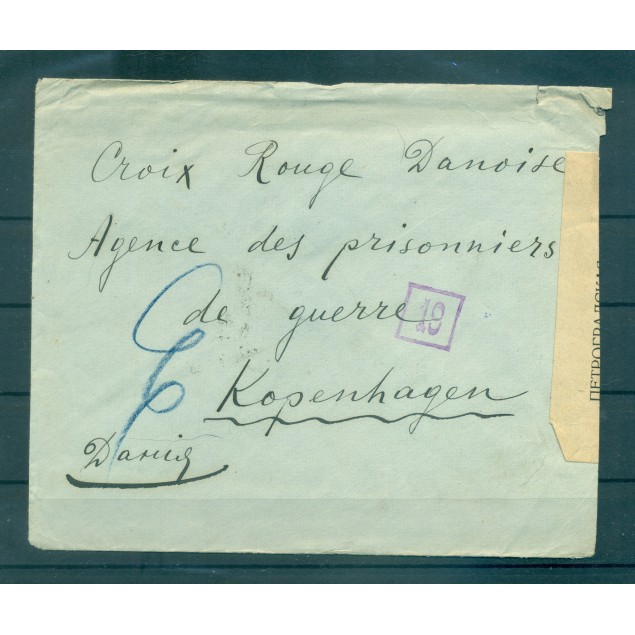 Croix Rouge Danoise
Agence des prisonniers
de guerre
19
Kopenhagen
Данія
ПЕТРОГРАДСКАЯ